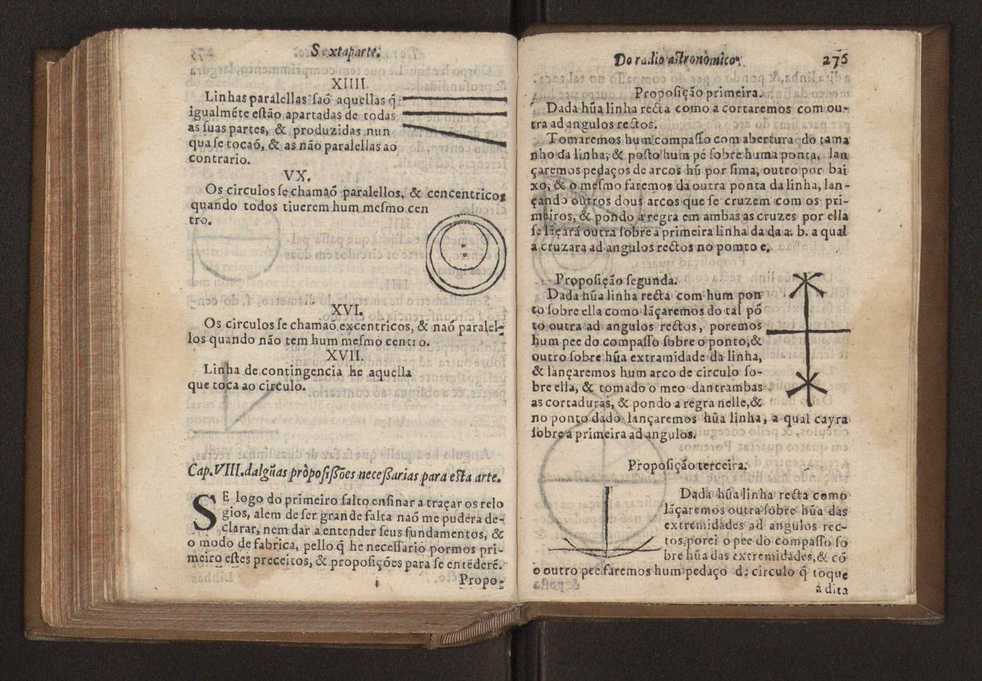 Sextaparte.
XIIII.
Linhas paralellas saõ aquellas q̃
igualmẽte estão apartadas de todas
as suas partes, & produzidas nun
qua se tocaõ, & as não paralellas ao
contrario.
VX.
Os circulos se chamaõ paralellos, & cencentricos
quando todos tiuerem hum mesmo cen
tro.
XVI.
Os circulos se chamaõ excentricos, & naõ paralel-
los quando não tem hum mesmo centro.
XVII.
Linha de contingencia he aquella
que toca ao circulo.
Cap. VIII. dalgũas pròposissões necessarias para esta arte.
SE logo do primeiro salto ensinar a traçar os relo
gios, alem de ser grande falta naõ me pudera de-
clarar, nem dar a entender seus fundamentos, &
o modo de fabrica, pello q̃ he necessario pormos pri-
meiro estes preceitos, & proposições para se entéderẽ.
Propo-
Do radio astronòmico. 276
Proposição primeira.
Dada hũa linha recta como a cortaremos com ou-
tra ad angulos rectos.
Tomaremos hum compasso com abertura do tama
nho da linha, & posto hum pé sobre huma ponta, lan
çaremos pedaços de arcos hũ por sima, outro por bai
xo, & o mesmo faremos da outra ponta da linha, lan-
çando outros dous arcos que se cruzem com os pri-
meiros, & pondo a regra em ambas as cruzes por ella
se lãçará outra sobre a primeira linha da da a. b. a qual
a cruzara ad angulos rectos no pomto e.
Proposição segunda.
Dada hũa linha recta com hum pon
to sobre ella como lãçaremos do tal põ
to outra ad angulos rectos, poremos
hum pee do compasso sobre o ponto, &
outro sobre hũa extramidade da linha,
& lançaremos hum arco de circulo so-
bre ella, & tomado o meo dantrambas
as cortaduras, & pondo a regra nelle, &
no ponto dado lançaremos hũa linha, a qual cayra
sobre a primeira ad angulos.
Proposição terceira.
Dada hũa linha recta como
lãçaremos outra sobre hũa das
extremidades ad angulos rec-
tos, porei o pee do compasso so
bre hũa das extremidades, & cõ
o outro pee faremos hum pedaço d: circulo q̃ toque
à dita